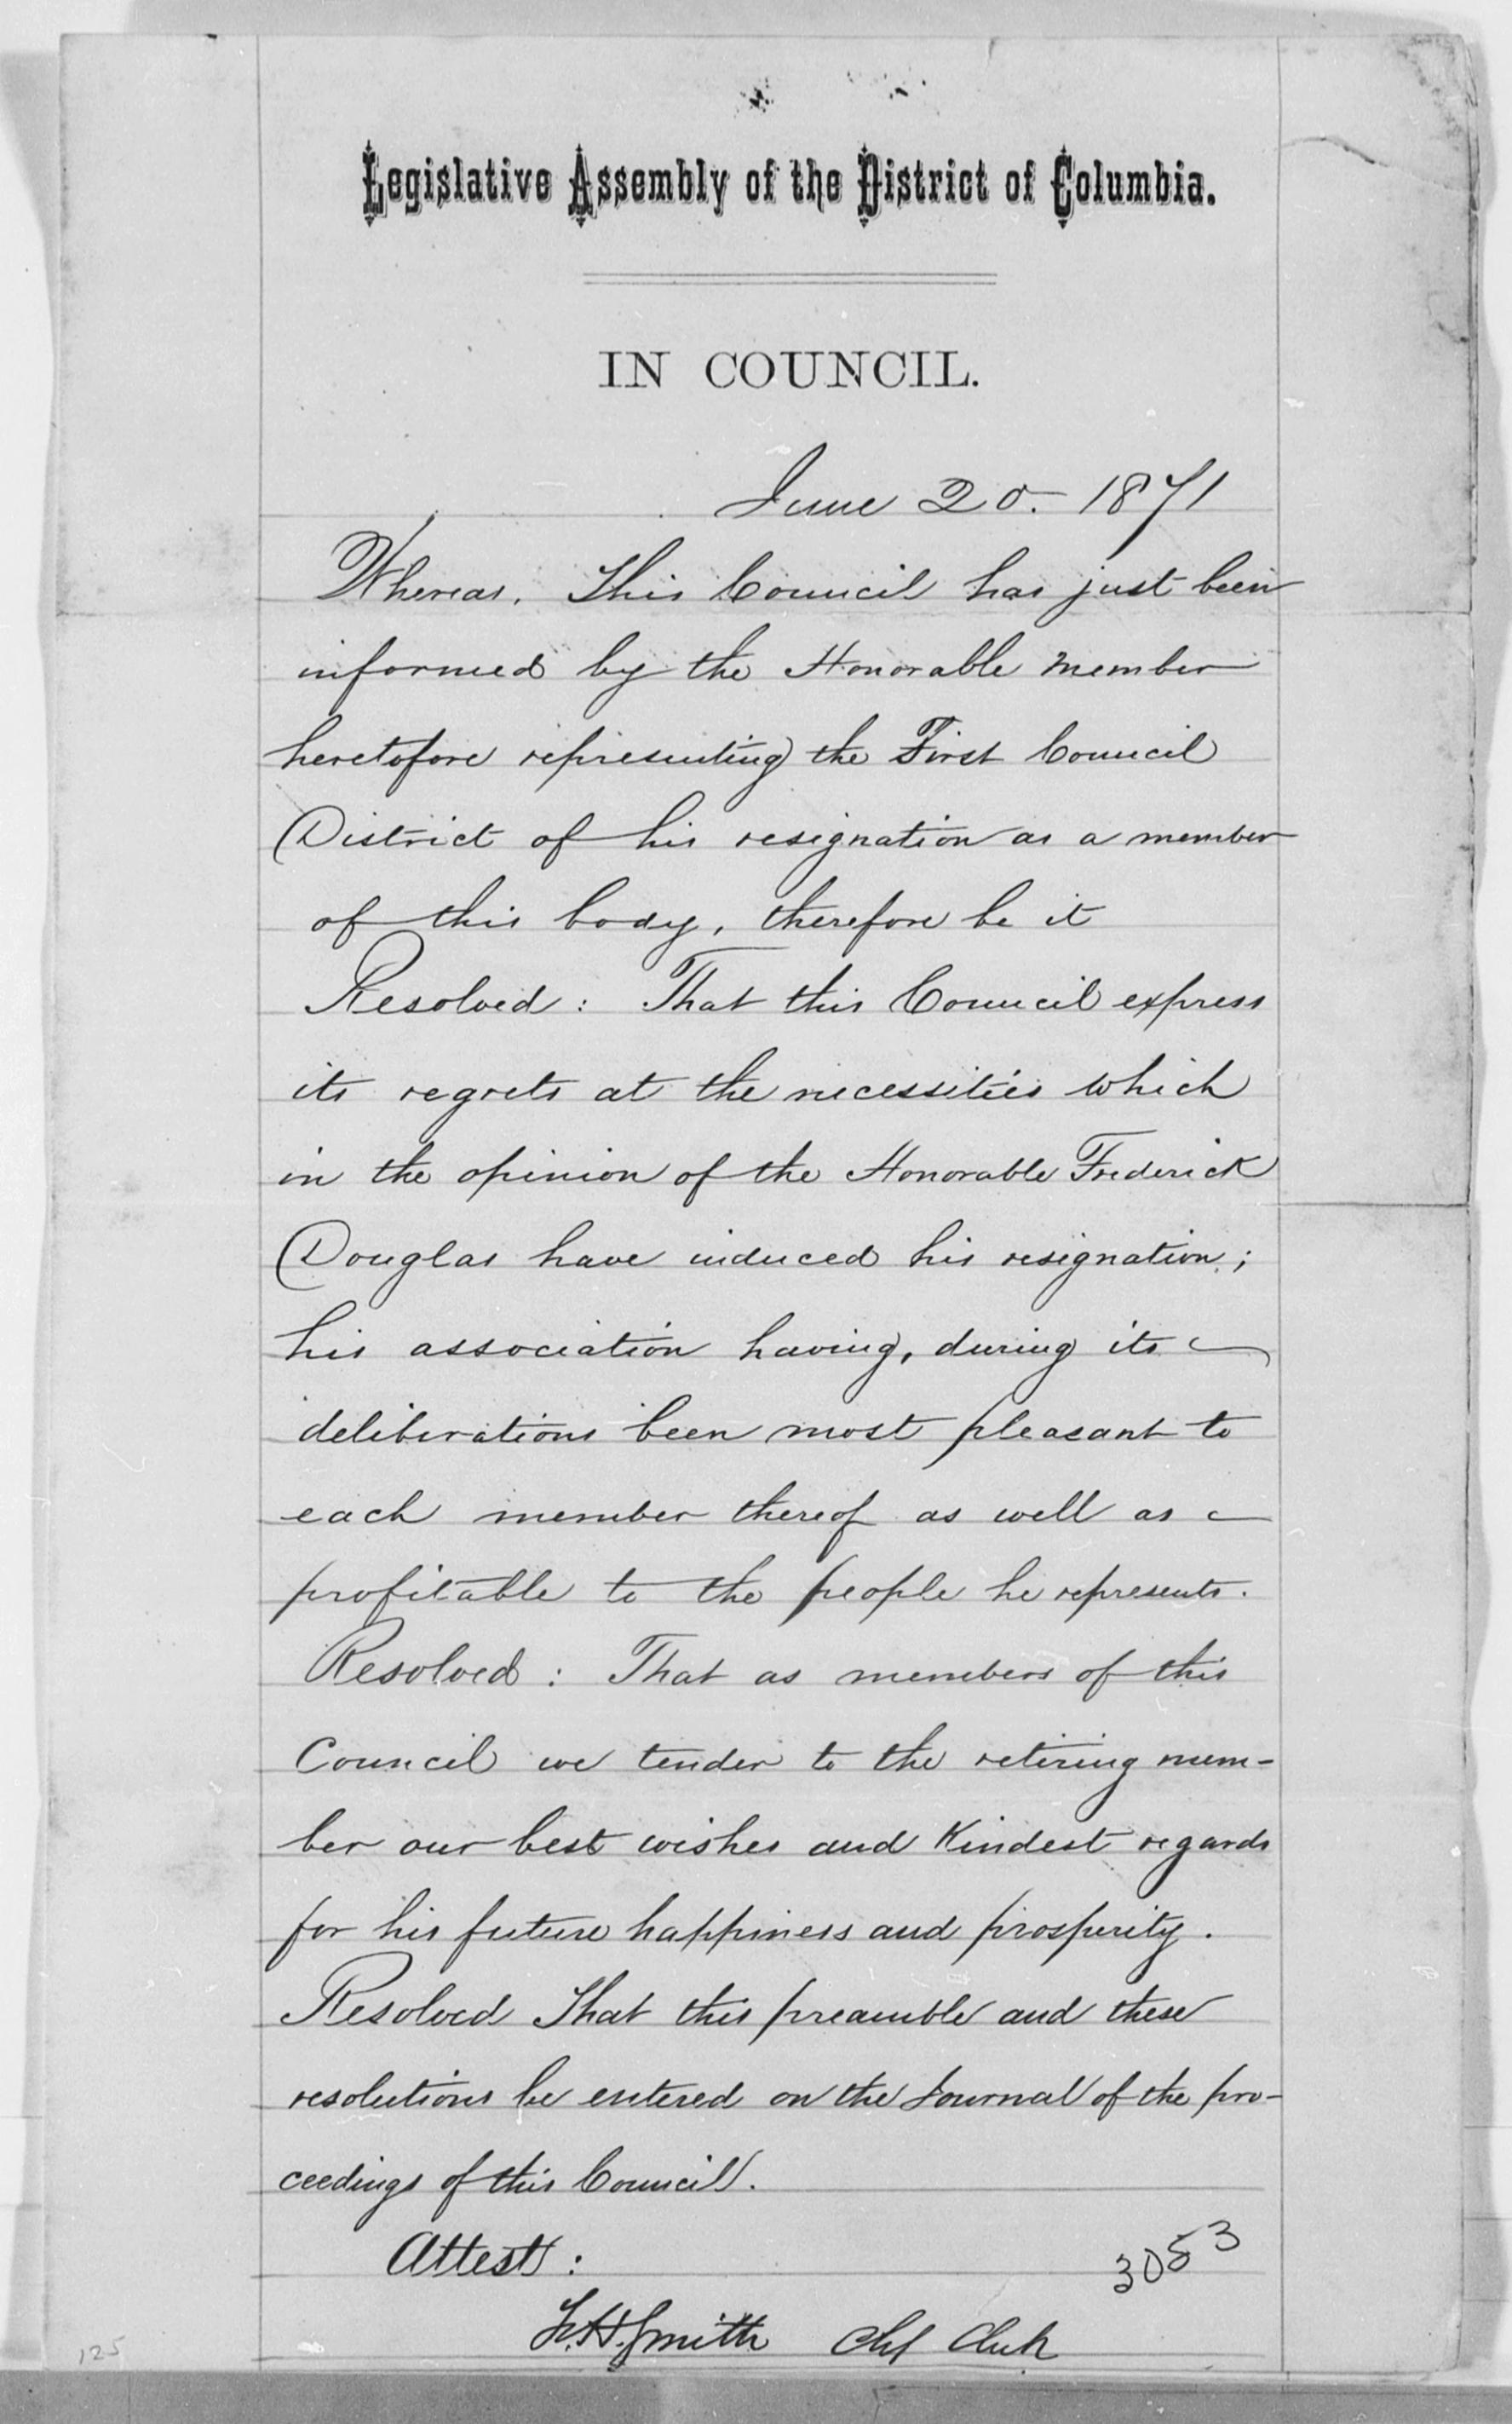 Legislative Assembly of the District of Columbia.
IN COUNCIL.
June 20. 1871
Whereas. This Council has just been
informed by the Honorable member
heretofore representing the First Council
District of his resignation as a member
of this body, therefore be it
Resolved: That this Council express
its regrets at the necessities which
in the opinion of the Honorable Frederick
Douglas have induced his resignation;
his association having, during its
deliberations been most pleasant to
each member thereof as well as
profitable to the people he represents.
Resolved: That as members of this
Council we tender to the retiring mem-
ber our best wishes and Kindest regards
for his future happiness and prosperity.
Resolved That this preamble and these
resolutions be entered on the Journal of the pro-
ceedings of this Council.
Attest:
3053
F.H. Smith Chf Clerk
125